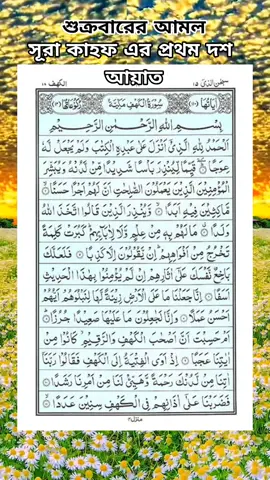 শুক্রবারের আমল
সূরা কাহফ এর প্রথম দশ
আয়াত
سبحن الذي ١٥
الكهف ١٨
سُوْرَةُ الْكَهْفِ مَكِّيَّةٌ
بِسْمِ اللهِ الرَّحْمٰنِ الرَّحِيْمِ
اَلْحَمْدُ لِلّٰهِ الَّذِيْٓ اَنْزَلَ عَلٰى عَبْدِهِ الْكِتٰبَ وَلَمْ يَجْعَلْ لَّهٗ
عِوَجًا ۜ قَيِّمًا لِّيُنْذِرَ بَاْسًا شَدِيْدًا مِّنْ لَّدُنْهُ وَيُبَشِّرَ
الْمُؤْمِنِيْنَ الَّذِيْنَ يَعْمَلُوْنَ الصّٰلِحٰتِ اَنَّ لَهُمْ اَجْرًا حَسَنًا
مَّاكِثِيْنَ فِيْهِ اَبَدًا وَّيُنْذِرَ الَّذِيْنَ قَالُوا اتَّخَذَ اللّٰهُ
وَلَدًا مَا لَهُمْ بِهٖ مِنْ عِلْمٍ وَّلَا لِاٰبَآئِهِمْ كَبُرَتْ كَلِمَةً
تَخْرُجُ مِنْ اَفْوَاهِهِمْ اِنْ يَّقُوْلُوْنَ اِلَّا كَذِبًا فَلَعَلَّكَ
بَاخِعٌ نَّفْسَكَ عَلٰٓى اٰثَارِهِمْ اِنْ لَّمْ يُؤْمِنُوْا بِهٰذَا الْحَدِيْثِ
اَسَفًا اِنَّا جَعَلْنَا مَا عَلَى الْاَرْضِ زِيْنَةً لَّهَا لِنَبْلُوَهُمْ اَيُّهُمْ
اَحْسَنُ عَمَلًا وَاِنَّا لَجٰعِلُوْنَ مَا عَلَيْهَا صَعِيْدًا جُرُزًا
اَمْ حَسِبْتَ اَنَّ اَصْحٰبَ الْكَهْفِ وَالرَّقِيْمِ كَانُوْا مِنْ
اٰيٰتِنَا عَجَبًا اِذْ اَوَى الْفِتْيَةُ اِلَى الْكَهْفِ فَقَالُوْا رَبَّنَآ
اٰتِنَا مِنْ لَّدُنْكَ رَحْمَةً وَّهَيِّئْ لَنَا مِنْ اَمْرِنَا رَشَدًا
فَضَرَبْنَا عَلٰٓى اٰذَانِهِمْ فِى الْكَهْفِ سِنِيْنَ عَدَدًا